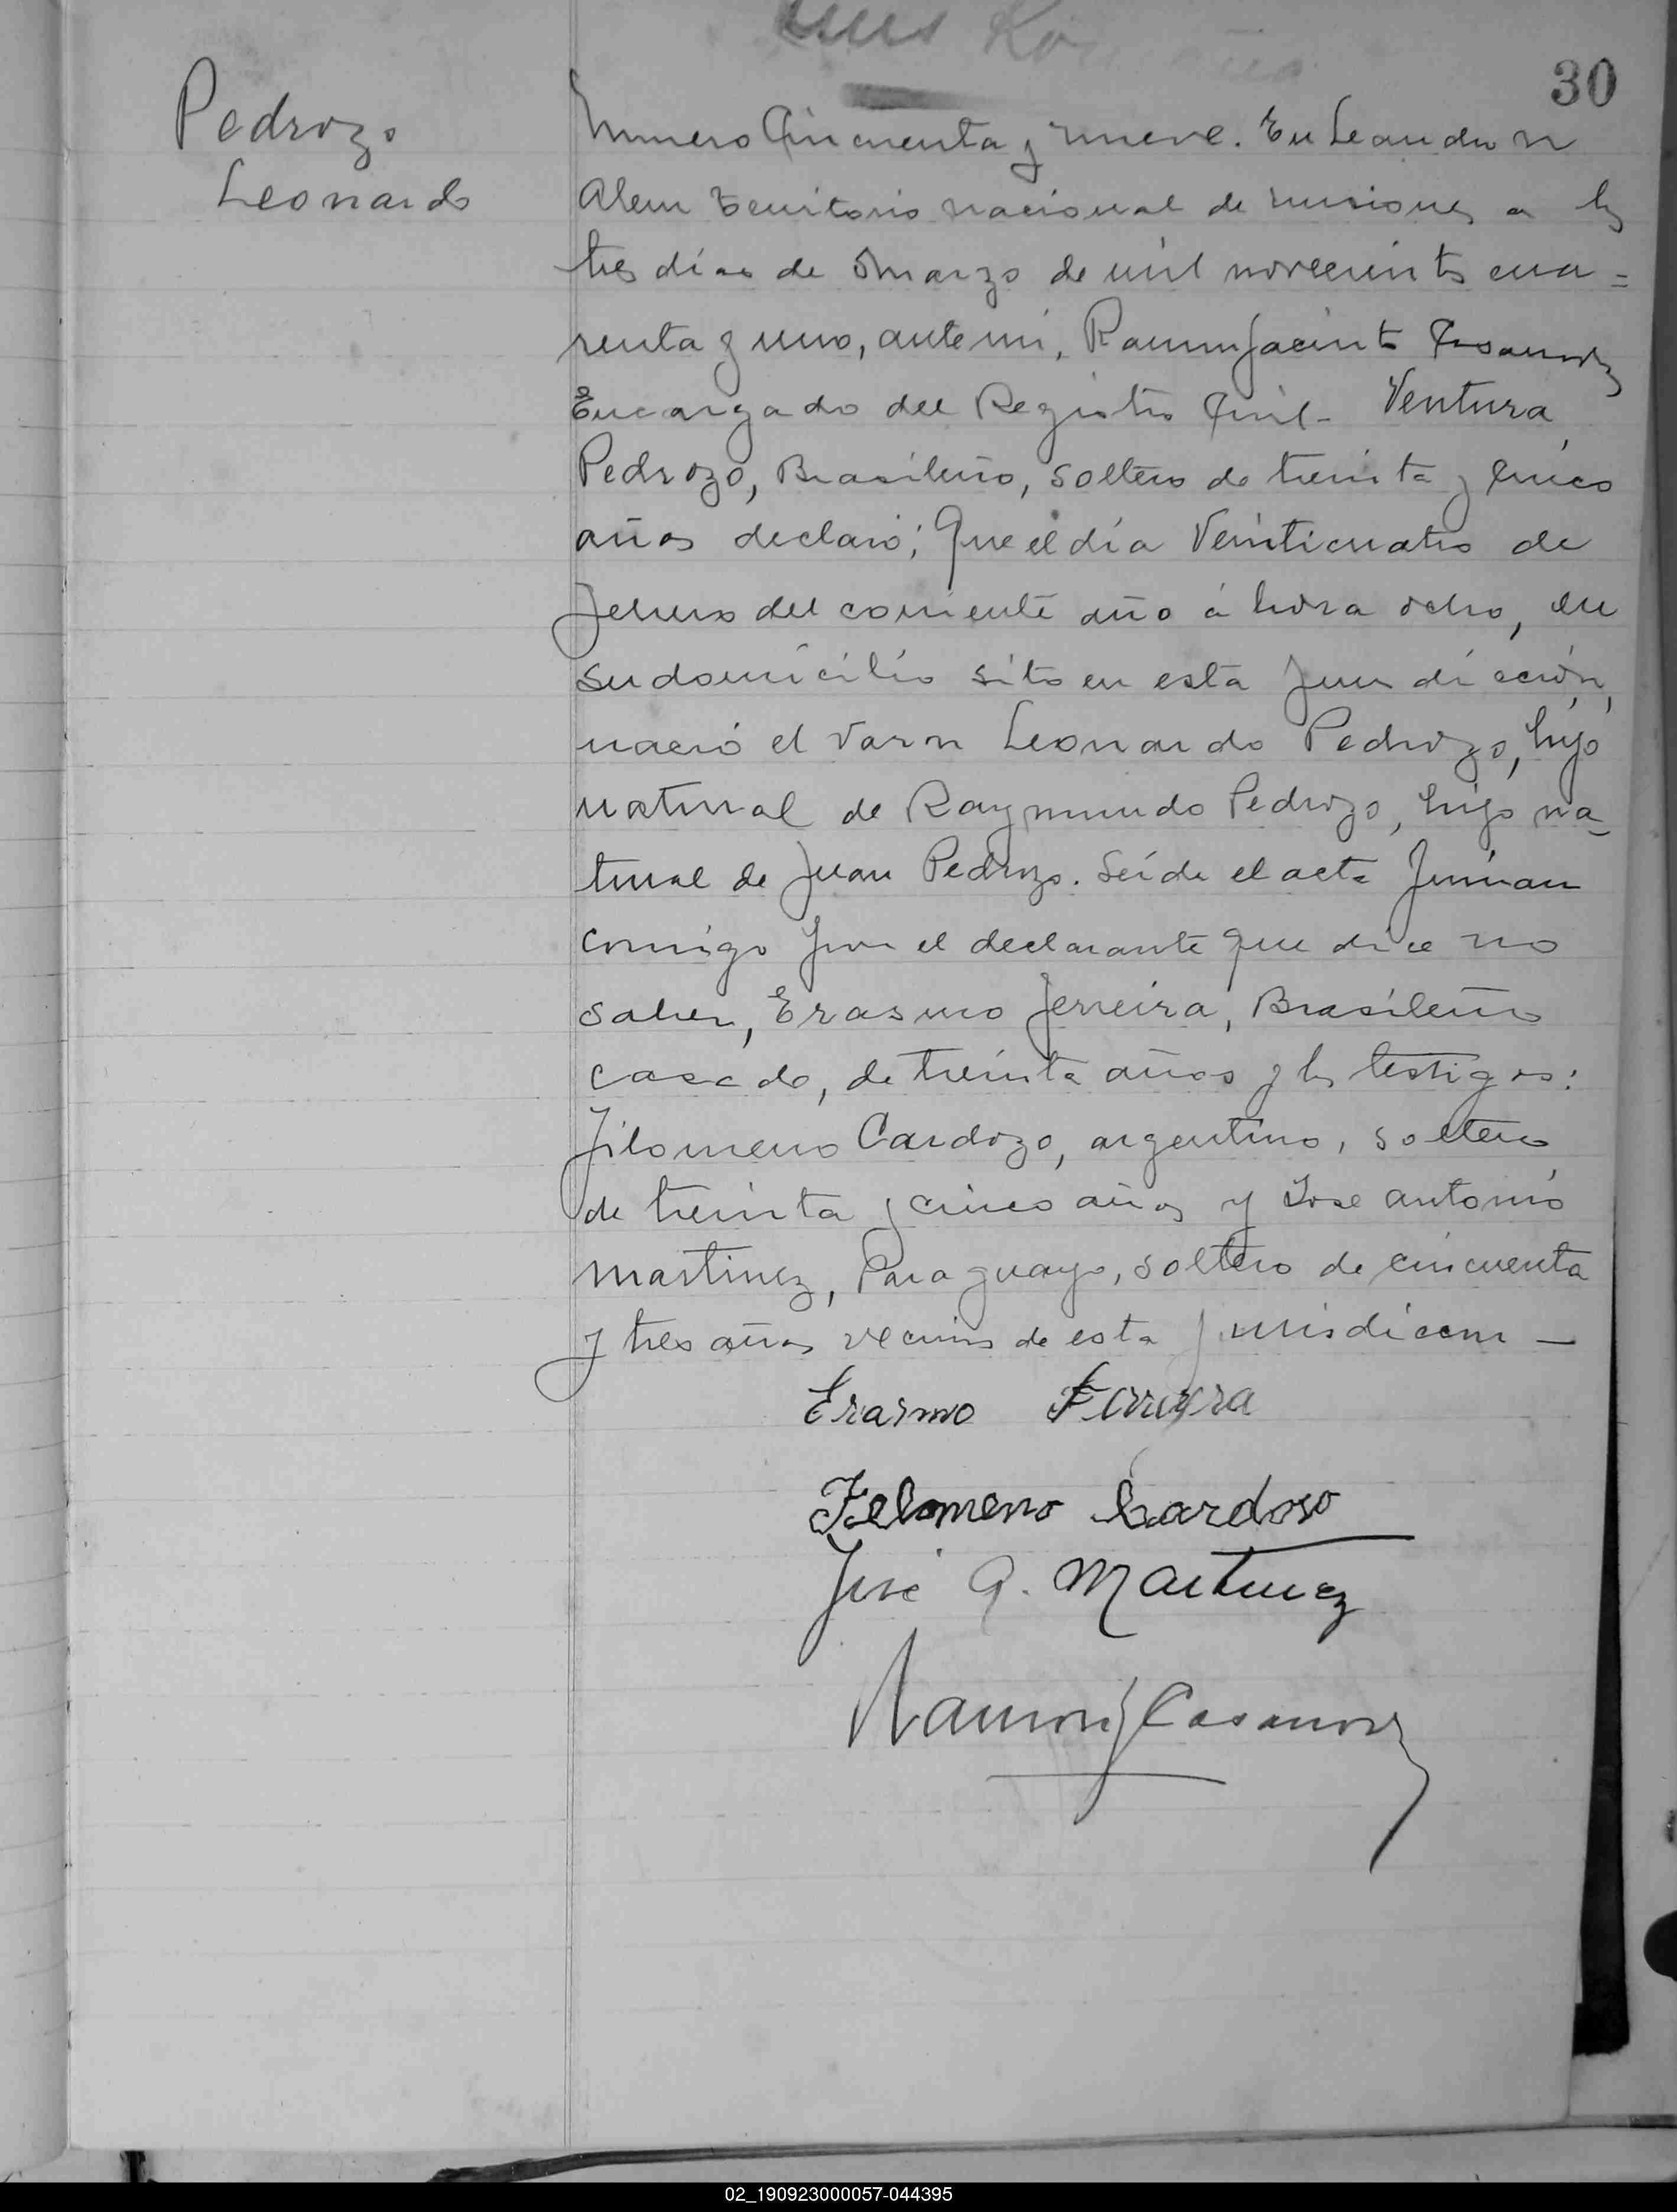 30
Pedrozo
Leonardo
Numero Cincuenta y nueve. En Leandro N
Alem Territorio nacional de Misiones a los
tres días de Marzo de mil novecientos cua=
renta y uno, ante mí, Ramon Jacinto Casanova
Encargado del Registro Civil- Ventura
Pedrozo, Brasileño, soltero de treinta y cinco
años declaró; Que el día Veinticuatro de
del corriente año á hora ocho, en
su domicilio sito en esta Jurisdicción,
nació el varon Leonardo Pedrozo, hijo
natural de Raymundo Pedrozo, hijo na_
tural de Juan Pedrozo. Leída el acta firman
conmigo por el declarante que dice no
saber, Erasmo Ferreira, Brasileño
casado, de treinta años y los testigos:
Filomeno Cardozo, argentino, soltero,
de treinta y cinco años y Jose Antonio
Martinez, Paraguayo, soltero de cincuenta
y tres años vecinos de esta Jurisdiccion —
Erasmo Ferreyra
Felomeno Cardoso
José A. Martinez
Ramon J Casanova
02_190923000057-044395